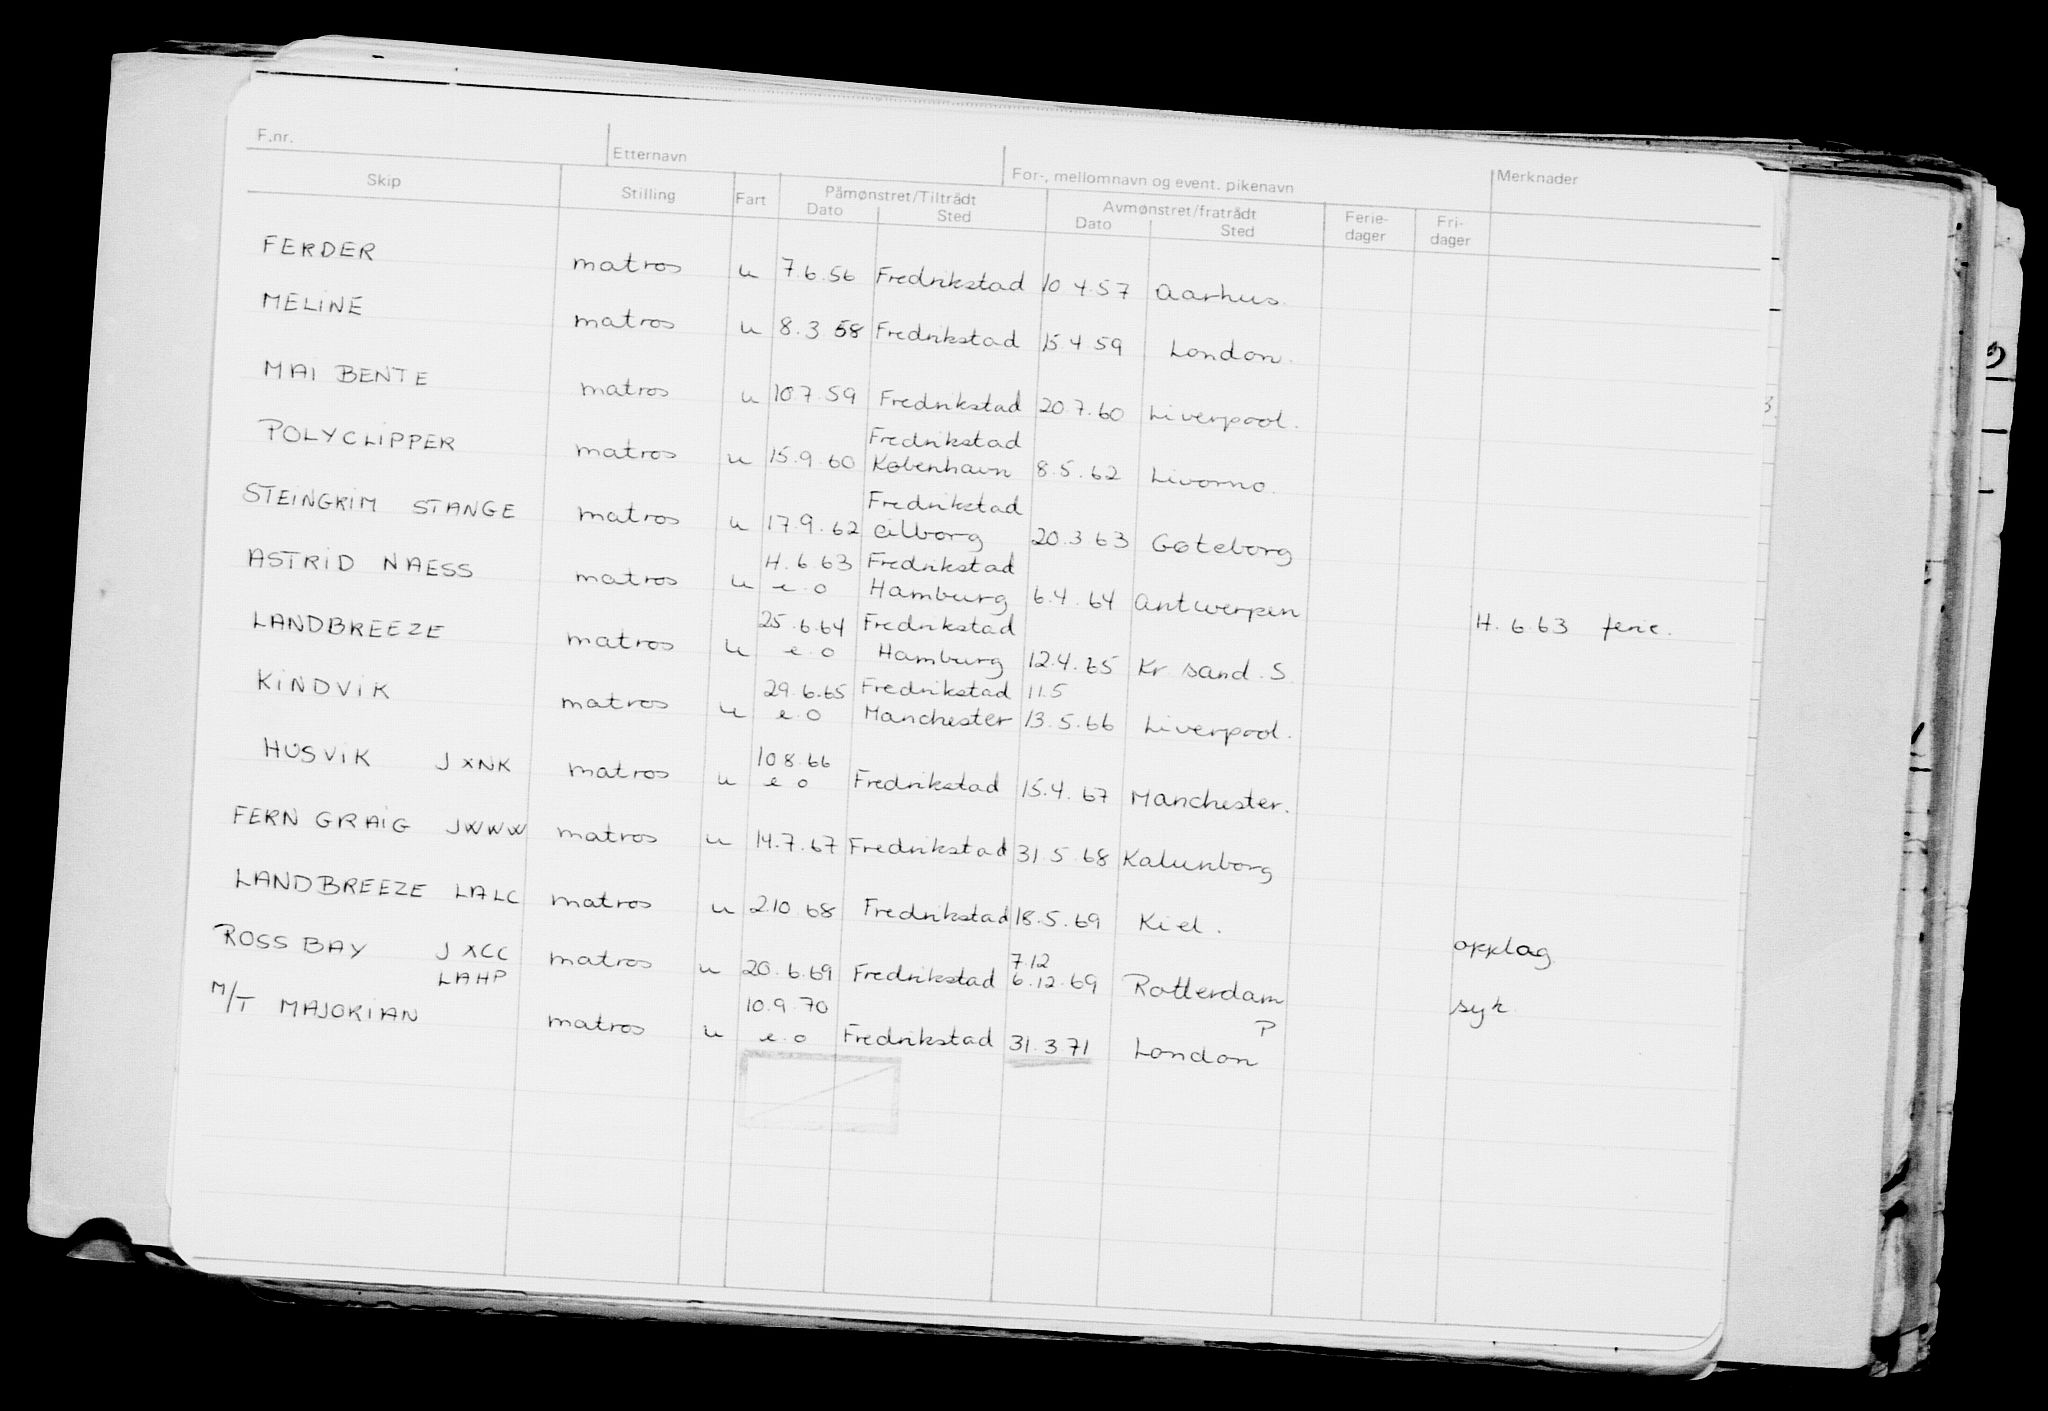 F.nr. Etternavn For-, mellomnavn og event. pikenavn Merknader
Skip Stilling Fart Påmønstret/Tiltrådt Avmønstret/fratrådt Ferie- Fri-
Dato Sted Dato Sted dager dager
FERDER matros u 7.6.56 Fredrikstad 10 4.57 Aarhus.
MELINE matros u 8.3 58 Fredrikstad 15.4.59 London.
MAI BENTE matros u 10.7.59 Fredrikstad 20.7.60 Liverpool.
Fredrikstad
POLYCLIPPER matros u 15.9.60 København 8.5.62 Livorno.
Fredrikstad
STEINGRIM STANGE matros u 17.9.62 20.3 63 Gøteborg
4.6 63 Fredrikstad
ASTRID NAESS matros u e.o Hamburg 6.4.64 Antwerpen 4.6.63 ferie.
25.6.64 Fredrikstad
LANDBREEZE matros u e.o Hamburg 12.4.65 Kr sand.S.
29.6.65 Fredrikstad 11.5
KINDVIK matros u e.o Manchester 13.5.66 Liverpool.
10 8.66
HUSVIK JXNK matros u e o Fredrikstad 15.4.67 Manchester.
FERN GRAIG JWWW matros u 14.7.67 Fredrikstad 31.5.68 Kalunborg
LANDBREEZE LALC matros u 2.10.68 Fredrikstad 18.5.69 Kiel. opplag
7.12
ROSS BAY JXCC matros u 20.6.69 Fredrikstad 6.12.69 Rotterdam syk.
LAHP
10.9.70 P
M/T MAJORIAN matros u e.o Fredrikstad 31.3 71 London